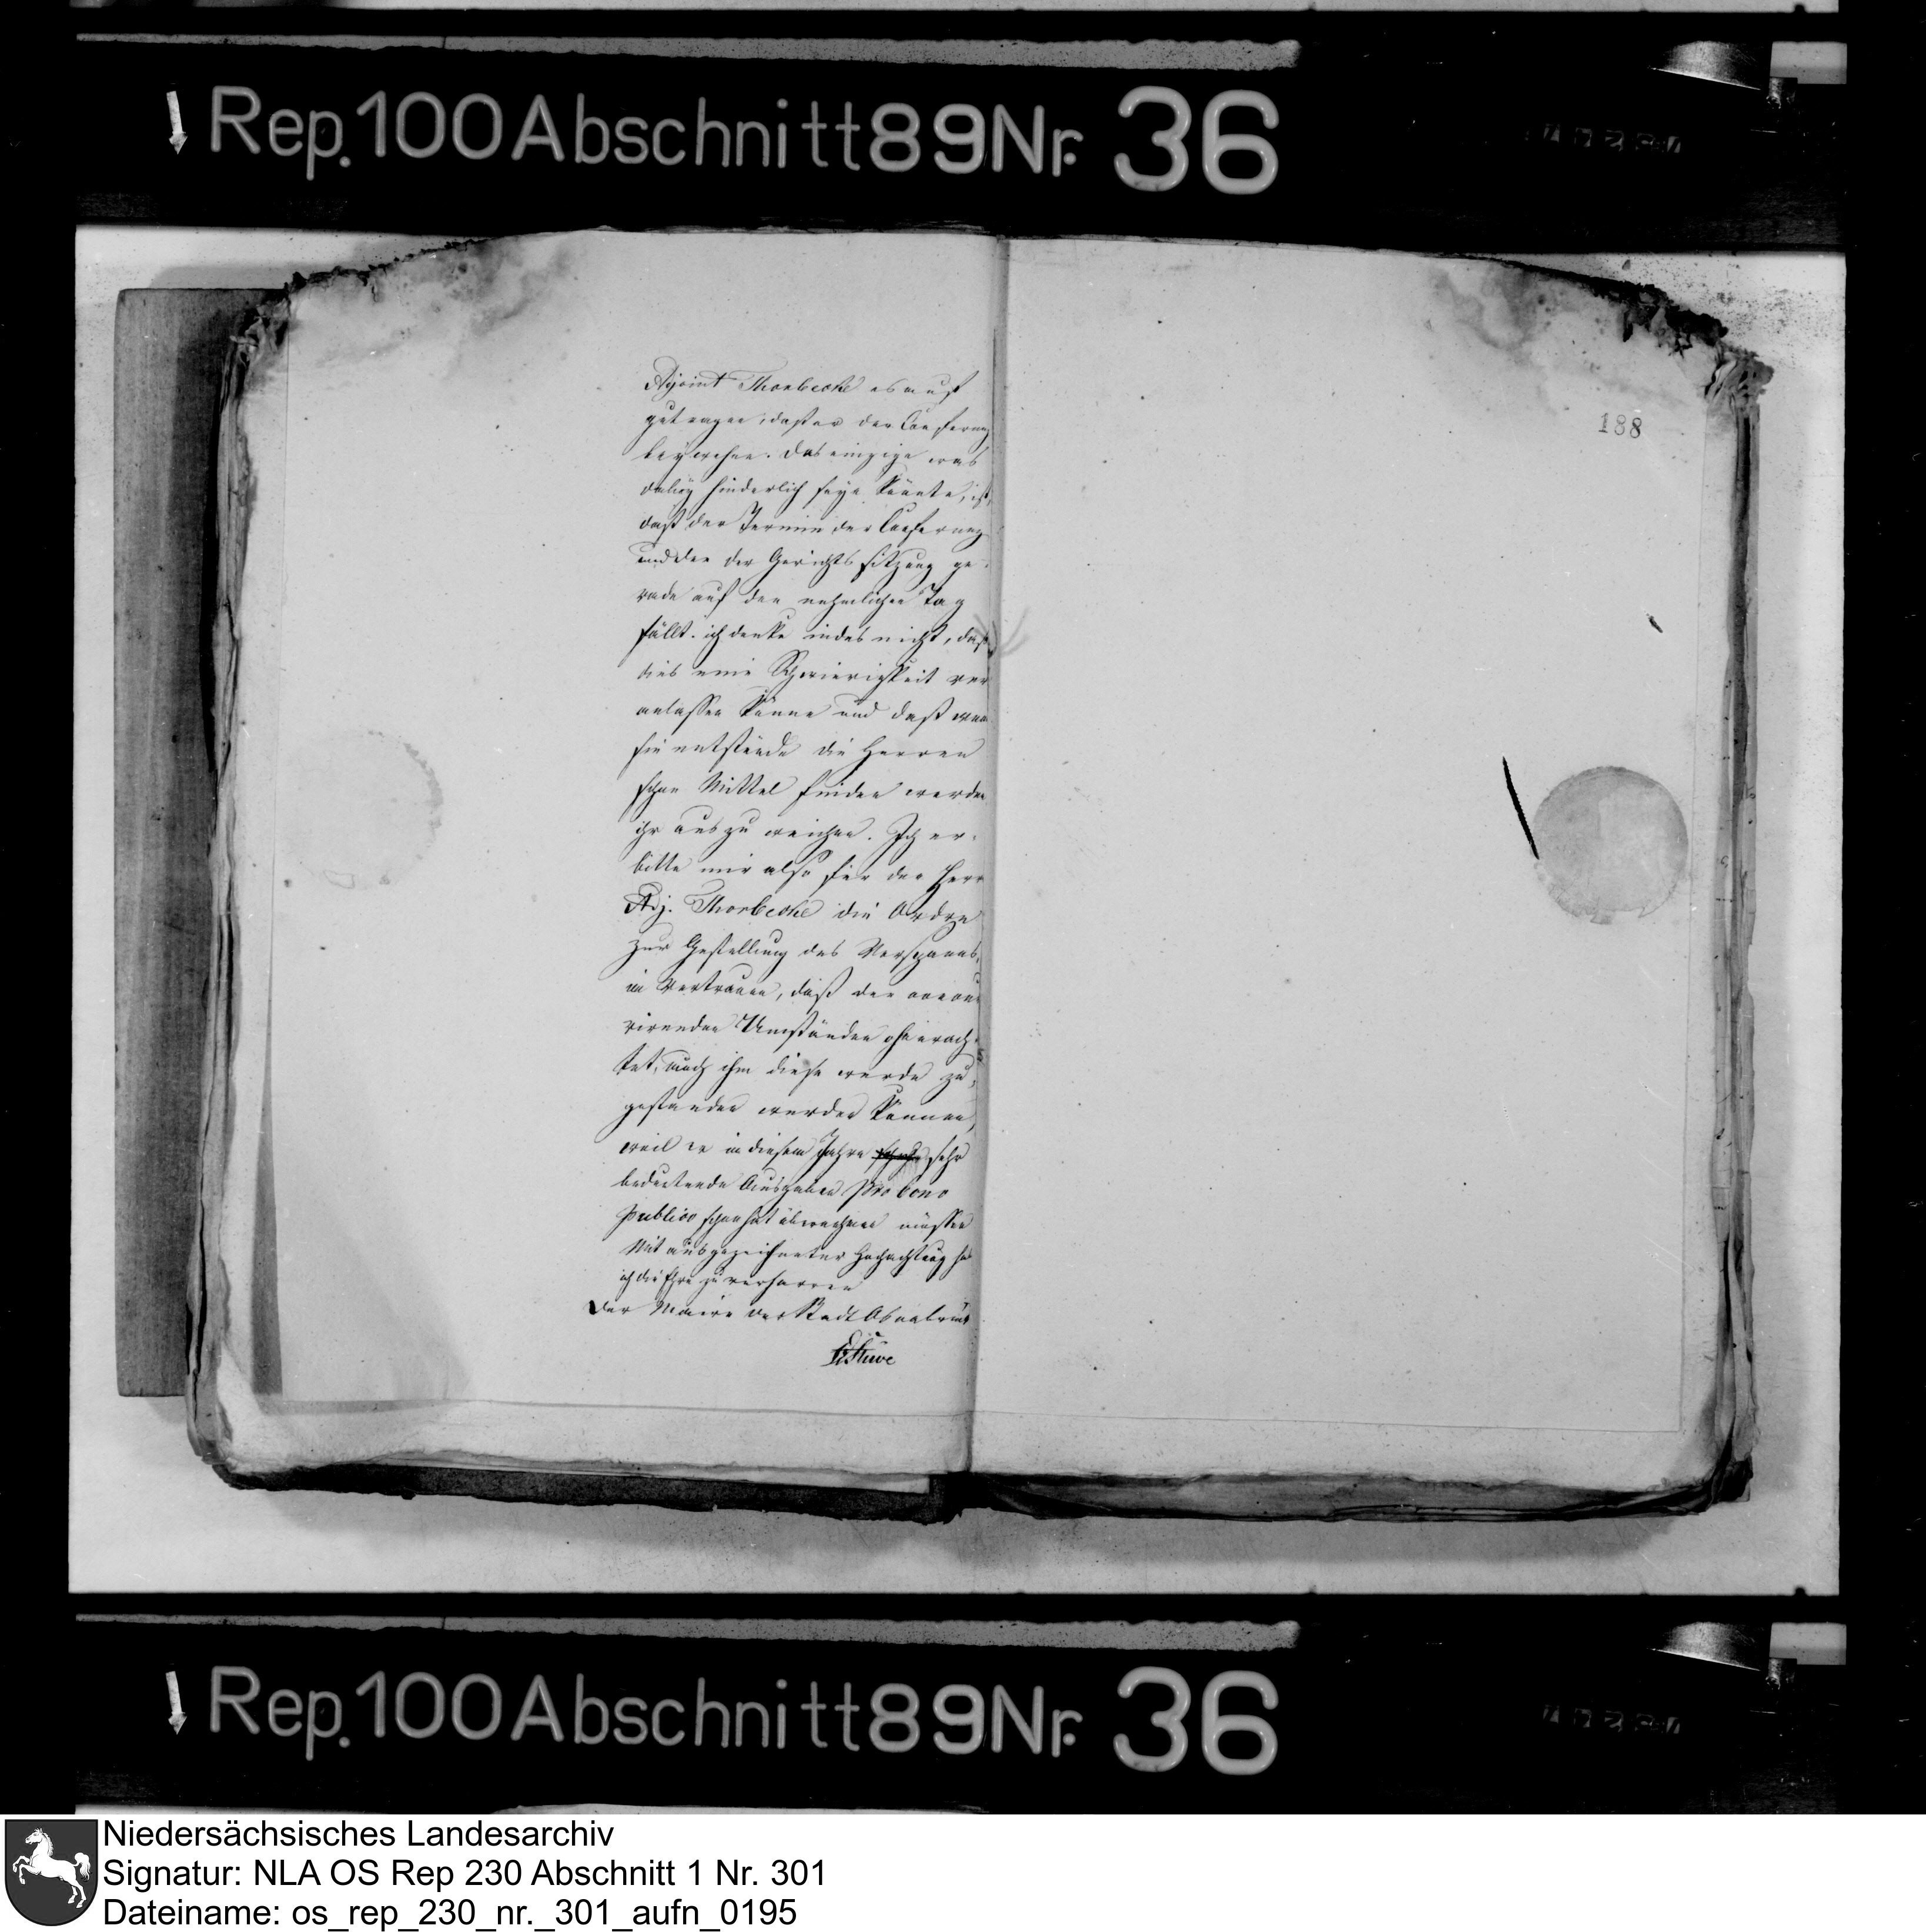 Rep. 100 Abschnitt 89 Nr. 36
Adjoint Thorbecke es auf
getragen, daß er der Conferenz
beywohne. Das einzige was
dabey hinderlich seyn könte, ist,
daß der Termin der Conferenz
und der der Gerichtssitzung ge-
rade auf den nehmlichen Tag
fällt. ich denke indes nicht, daß
dies eine Schwierigkeit ver
anlassen könne und daß wen
sie entstünde die Herren
schon Mittel finden werden
ihr auszuweichen. Ich er-
bitte mir also für den Herr
Adj. Thorbecke die Ordre
zur Gestellung des Vorspanns,
im Vertrauen, daß der
Umständen ohnerach-
tet, auch ihm diese werde zu-
gestanden werden können,
weil er in diesem Jahre sehr
bedeutende Ausgaben pro bono
publico schon hat übernehmen müssen
Mit ausgezeichneter Hochachtung hab
ich die Ehre zu verharren
Der Maire der Stadt Osnabrück
Stüve
188
Rep. 100 Abschnitt 89 Nr. 36
Niedersächsisches Landesarchiv
Signatur: NLA OS Rep 230 Abschnitt 1 Nr. 301
Dateiname: os_rep_230_nr._301_aufn_0195